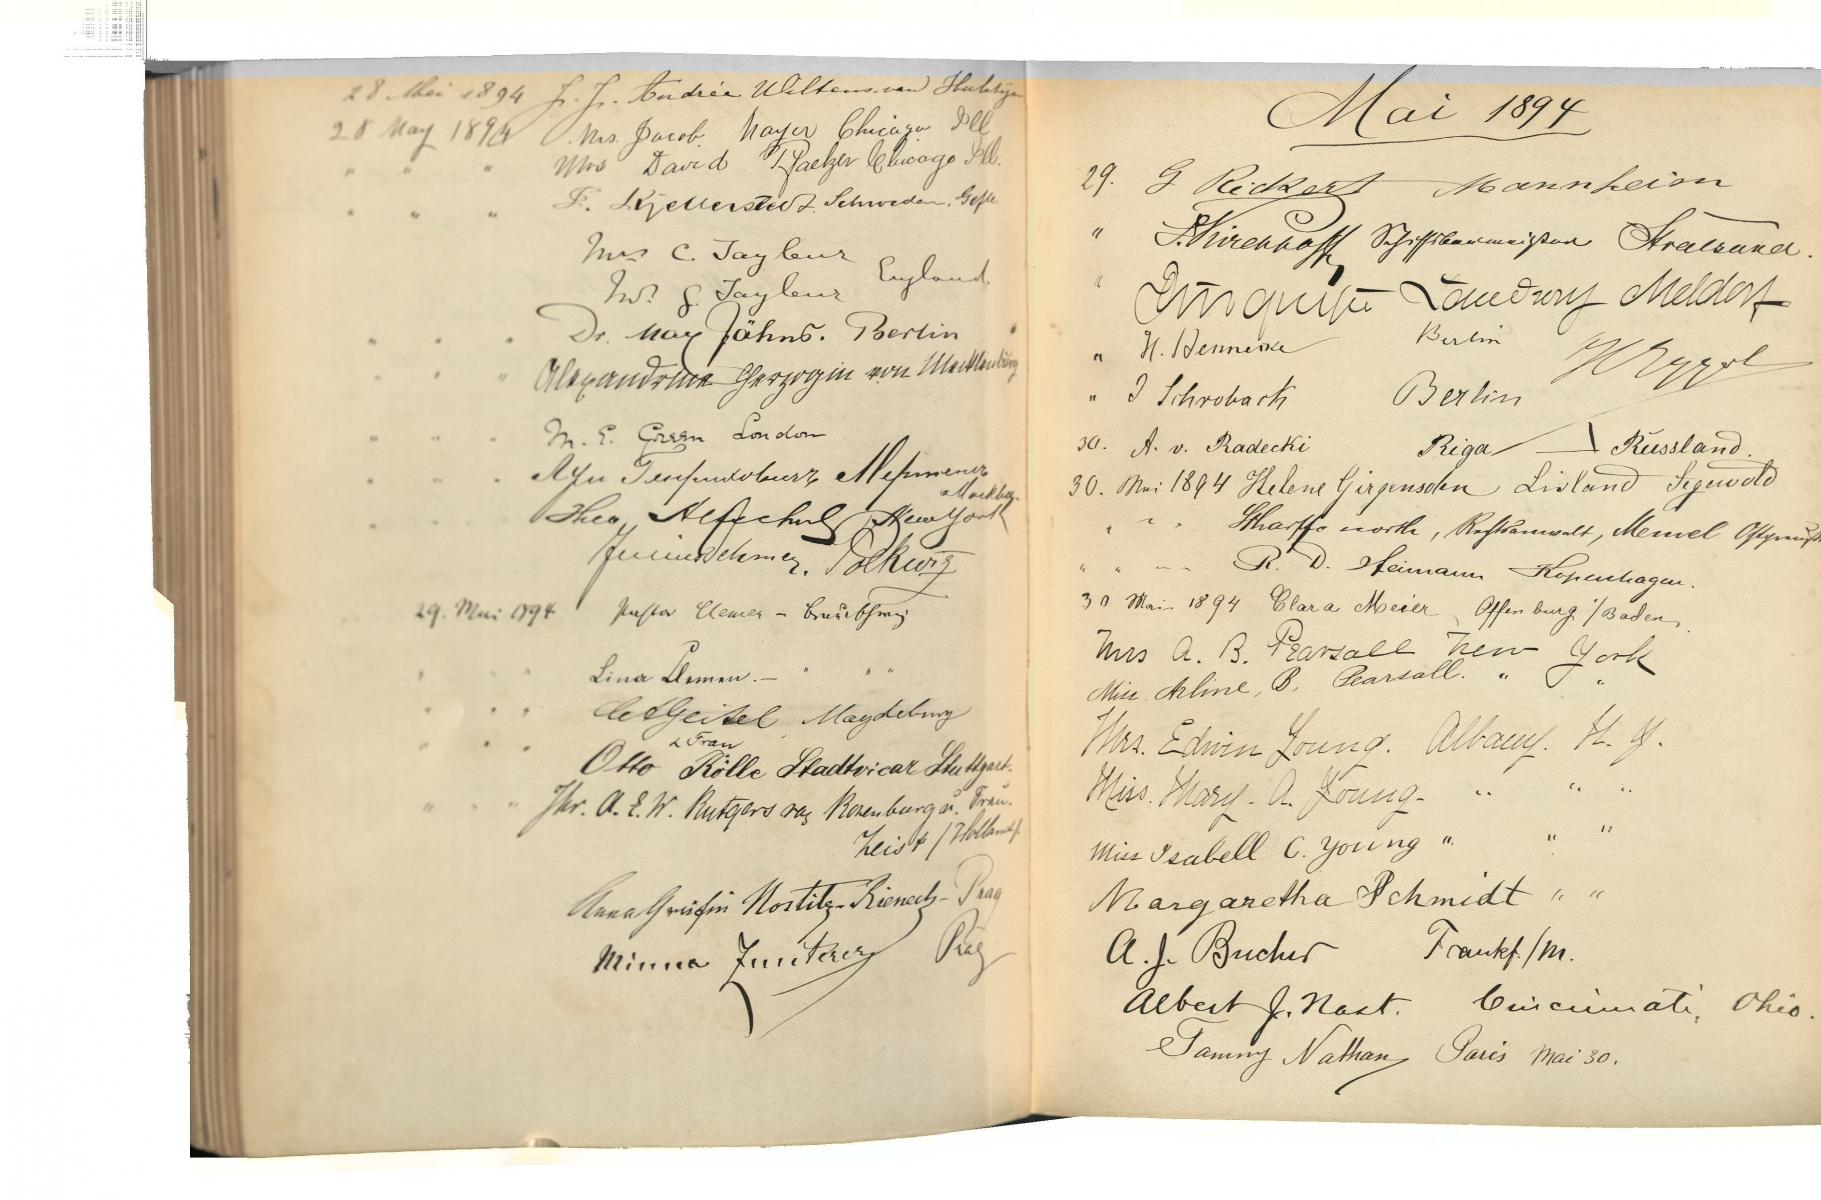 28 Mai 1894 J. J. Andrée Wiltens van
28 May 1894 Mrs. Jacob Mayer Chicago Ill
" " " Mrs David Chicago Ill.
" " " F. Kjellerstedt. Schweden, Gefle
Mrs C. Tayleur
England.
G. Tayleur
" " " Dr. Max Jähns. Berlin "
" " " Alexandrine Herzogin von Mecklenburg
" " " M. E. Green London
" " "
" " " Theo. Altschul New York
29. Mai 1894 Pastor Clemen –
" " " Lina Clemen. – " " "
" " " Geisel Magdeburg
& Frau
" " " Otto Kölle Stadtvicar Stuttgart.
" " " Jhr. A. E. W. Rutgers van Rosenburg u. Frau.
Zeist / Holland /.
Anna Gräfin Nostitz-Rieneck - Prag
Minna Prag
Mai 1894
29. G Rickert Mannheim
" Kirchhoff Schiffsbaumeister Stralsund.
" Landvogt Meldorf
" H. Hennecke Berlin
" J Schroback Berlin
30. A. v. Radecki Riga — Russland.
30. Mai 1894 Helene Girgensohn Livland Segewold
" " " Rechtsanwalt, Memel Ostpreußen
" " " R. D. Heimann Kopenhagen.
30 Mai 1894 Clara Meier Offenburg i/Baden.
Mrs A. B. Pearsall New York
Miss Arline, B. Pearsall. " "
Mrs. Edwin Young. Albany. N. Y.
Miss. Mary. A. Young. " " "
Miss Isabell C. Young " " "
Margaretha Schmidt " "
A. J. Bucher Frankf./M.
Albert J. Nast. Cincinnati, Ohio.
Fanny Nathan Paris Mai 30.